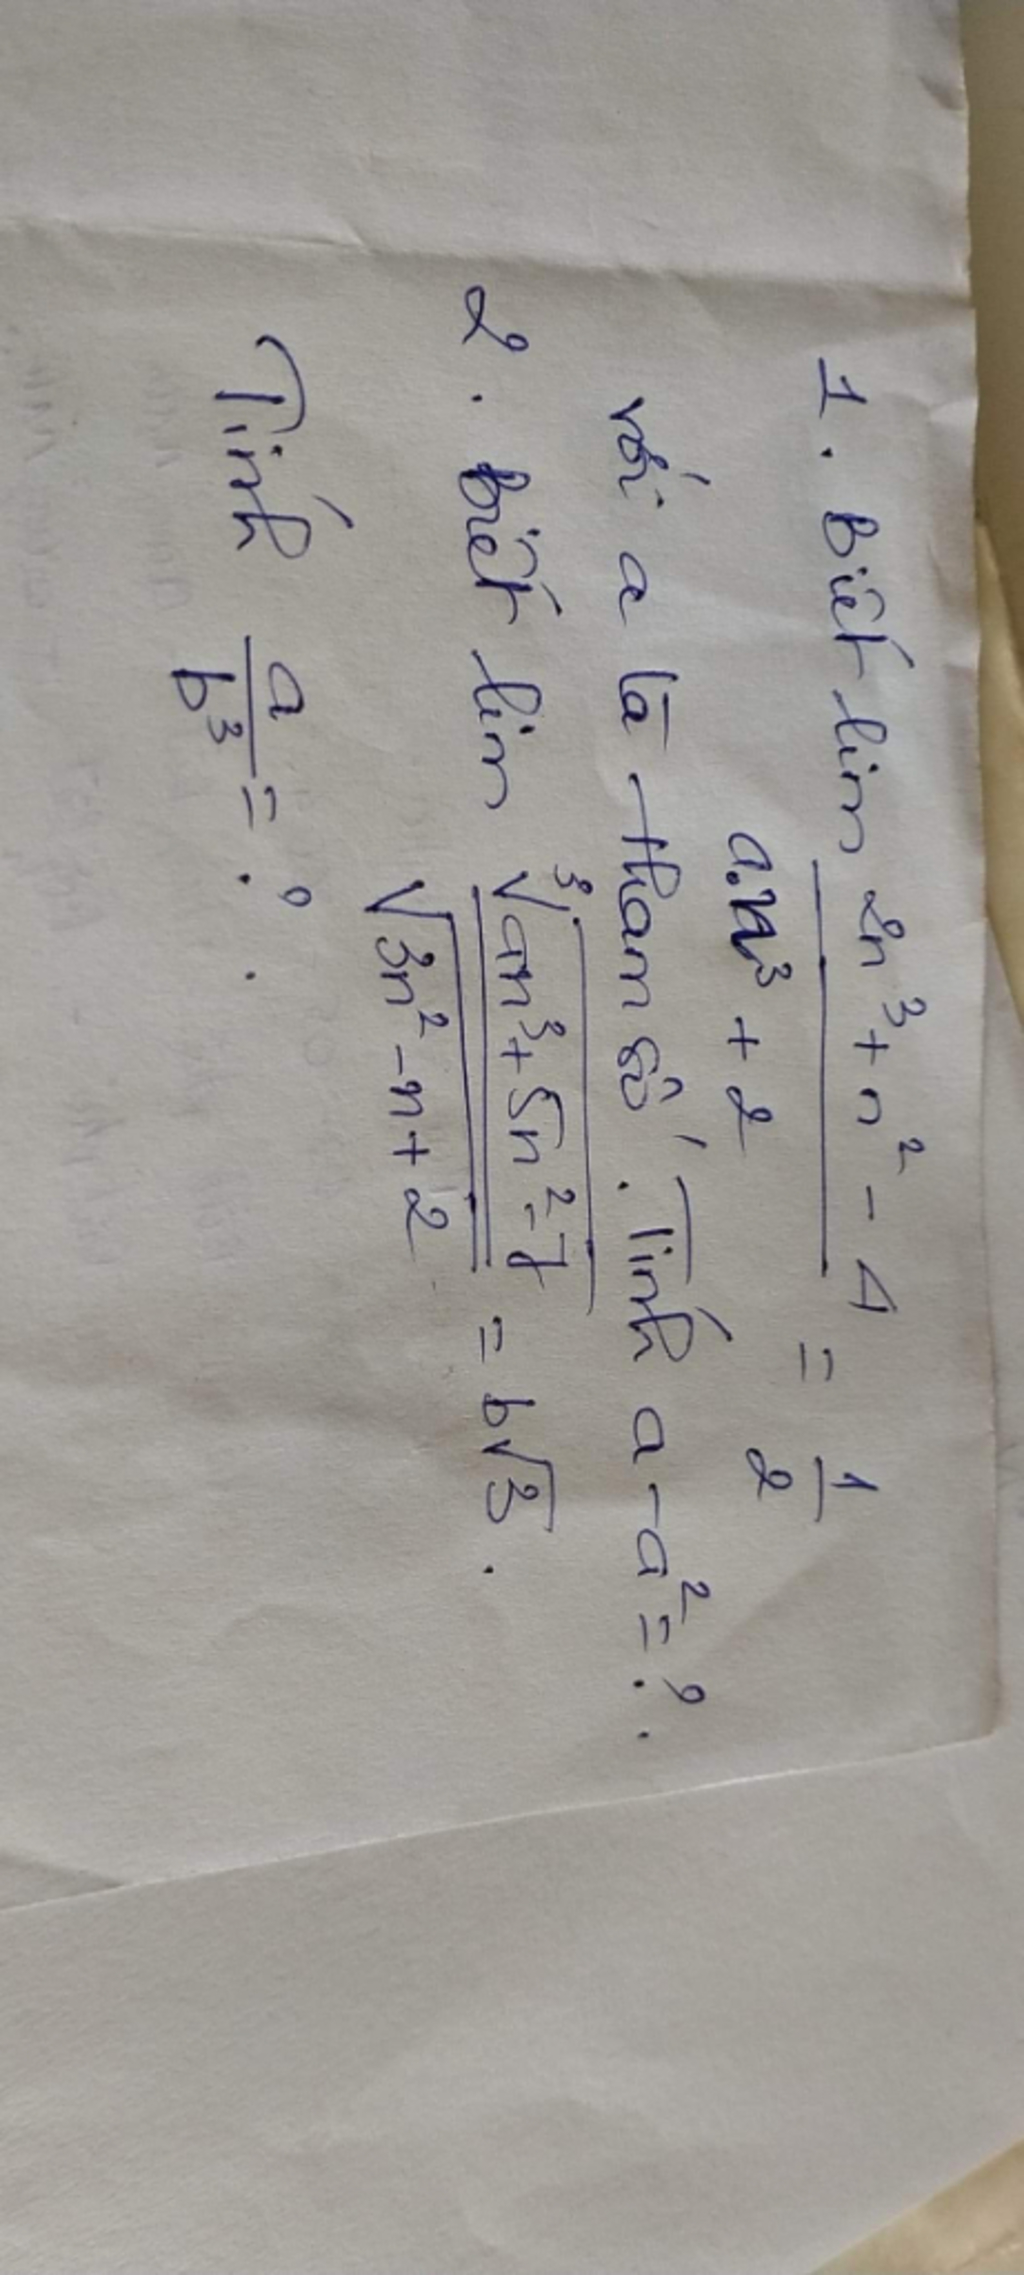 1. Biết lim (2n³ + n² - 4)/(a.n³ + 2) = 1/2
với a là tham số. Tính a - a² = ?.
2. biết lim ∛(an³ + 5n² - 7)/√(3n² - n + 2) = b√3.
Tính a/b³ = ?.